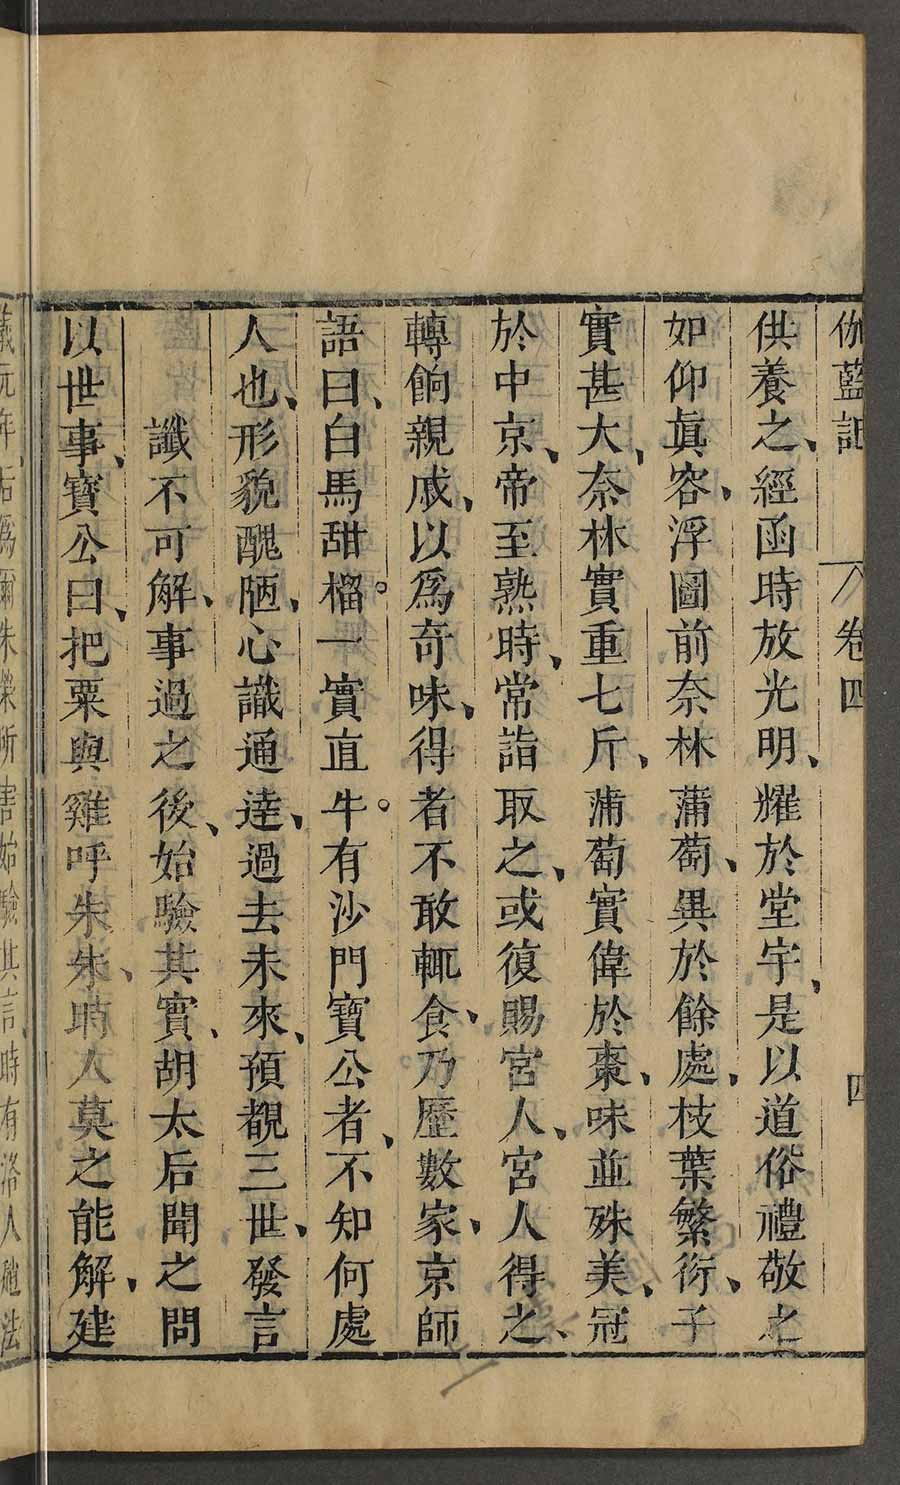 伽藍記 卷四 四
供養之、經函時放光明、耀於堂宇、是以道俗禮敬之
如仰眞容、浮圖前奈林蒲萄、異於餘處、枝葉繁衍、子
實甚大、奈林實重七斤、蒲萄實偉於棗、味並殊美、冠
於中京、帝至熟時、常詣取之、或復賜宮人、宮人得之、
轉餉親戚、以爲奇味、得者不敢輒食、乃歷數家、京師
語曰、白馬甜榴。一實直牛。有沙門寶公者、不知何處
人也、形貌醜陋、心識通達、過去未來、預覩三世、發言
讖不可解、事過之後、始驗其實、胡太后聞之問
以世事、寶公曰、把粟與雞呼朱朱、時人莫之能解、建
義元年、后爲爾朱榮所害始驗其言、時有洛人趙法